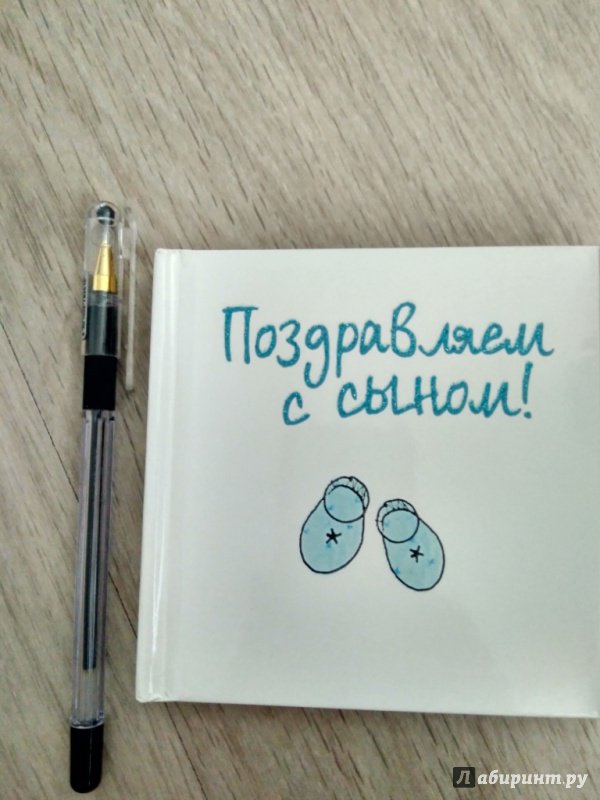 Поздравляем
с сыном!
Лабиринт.ру